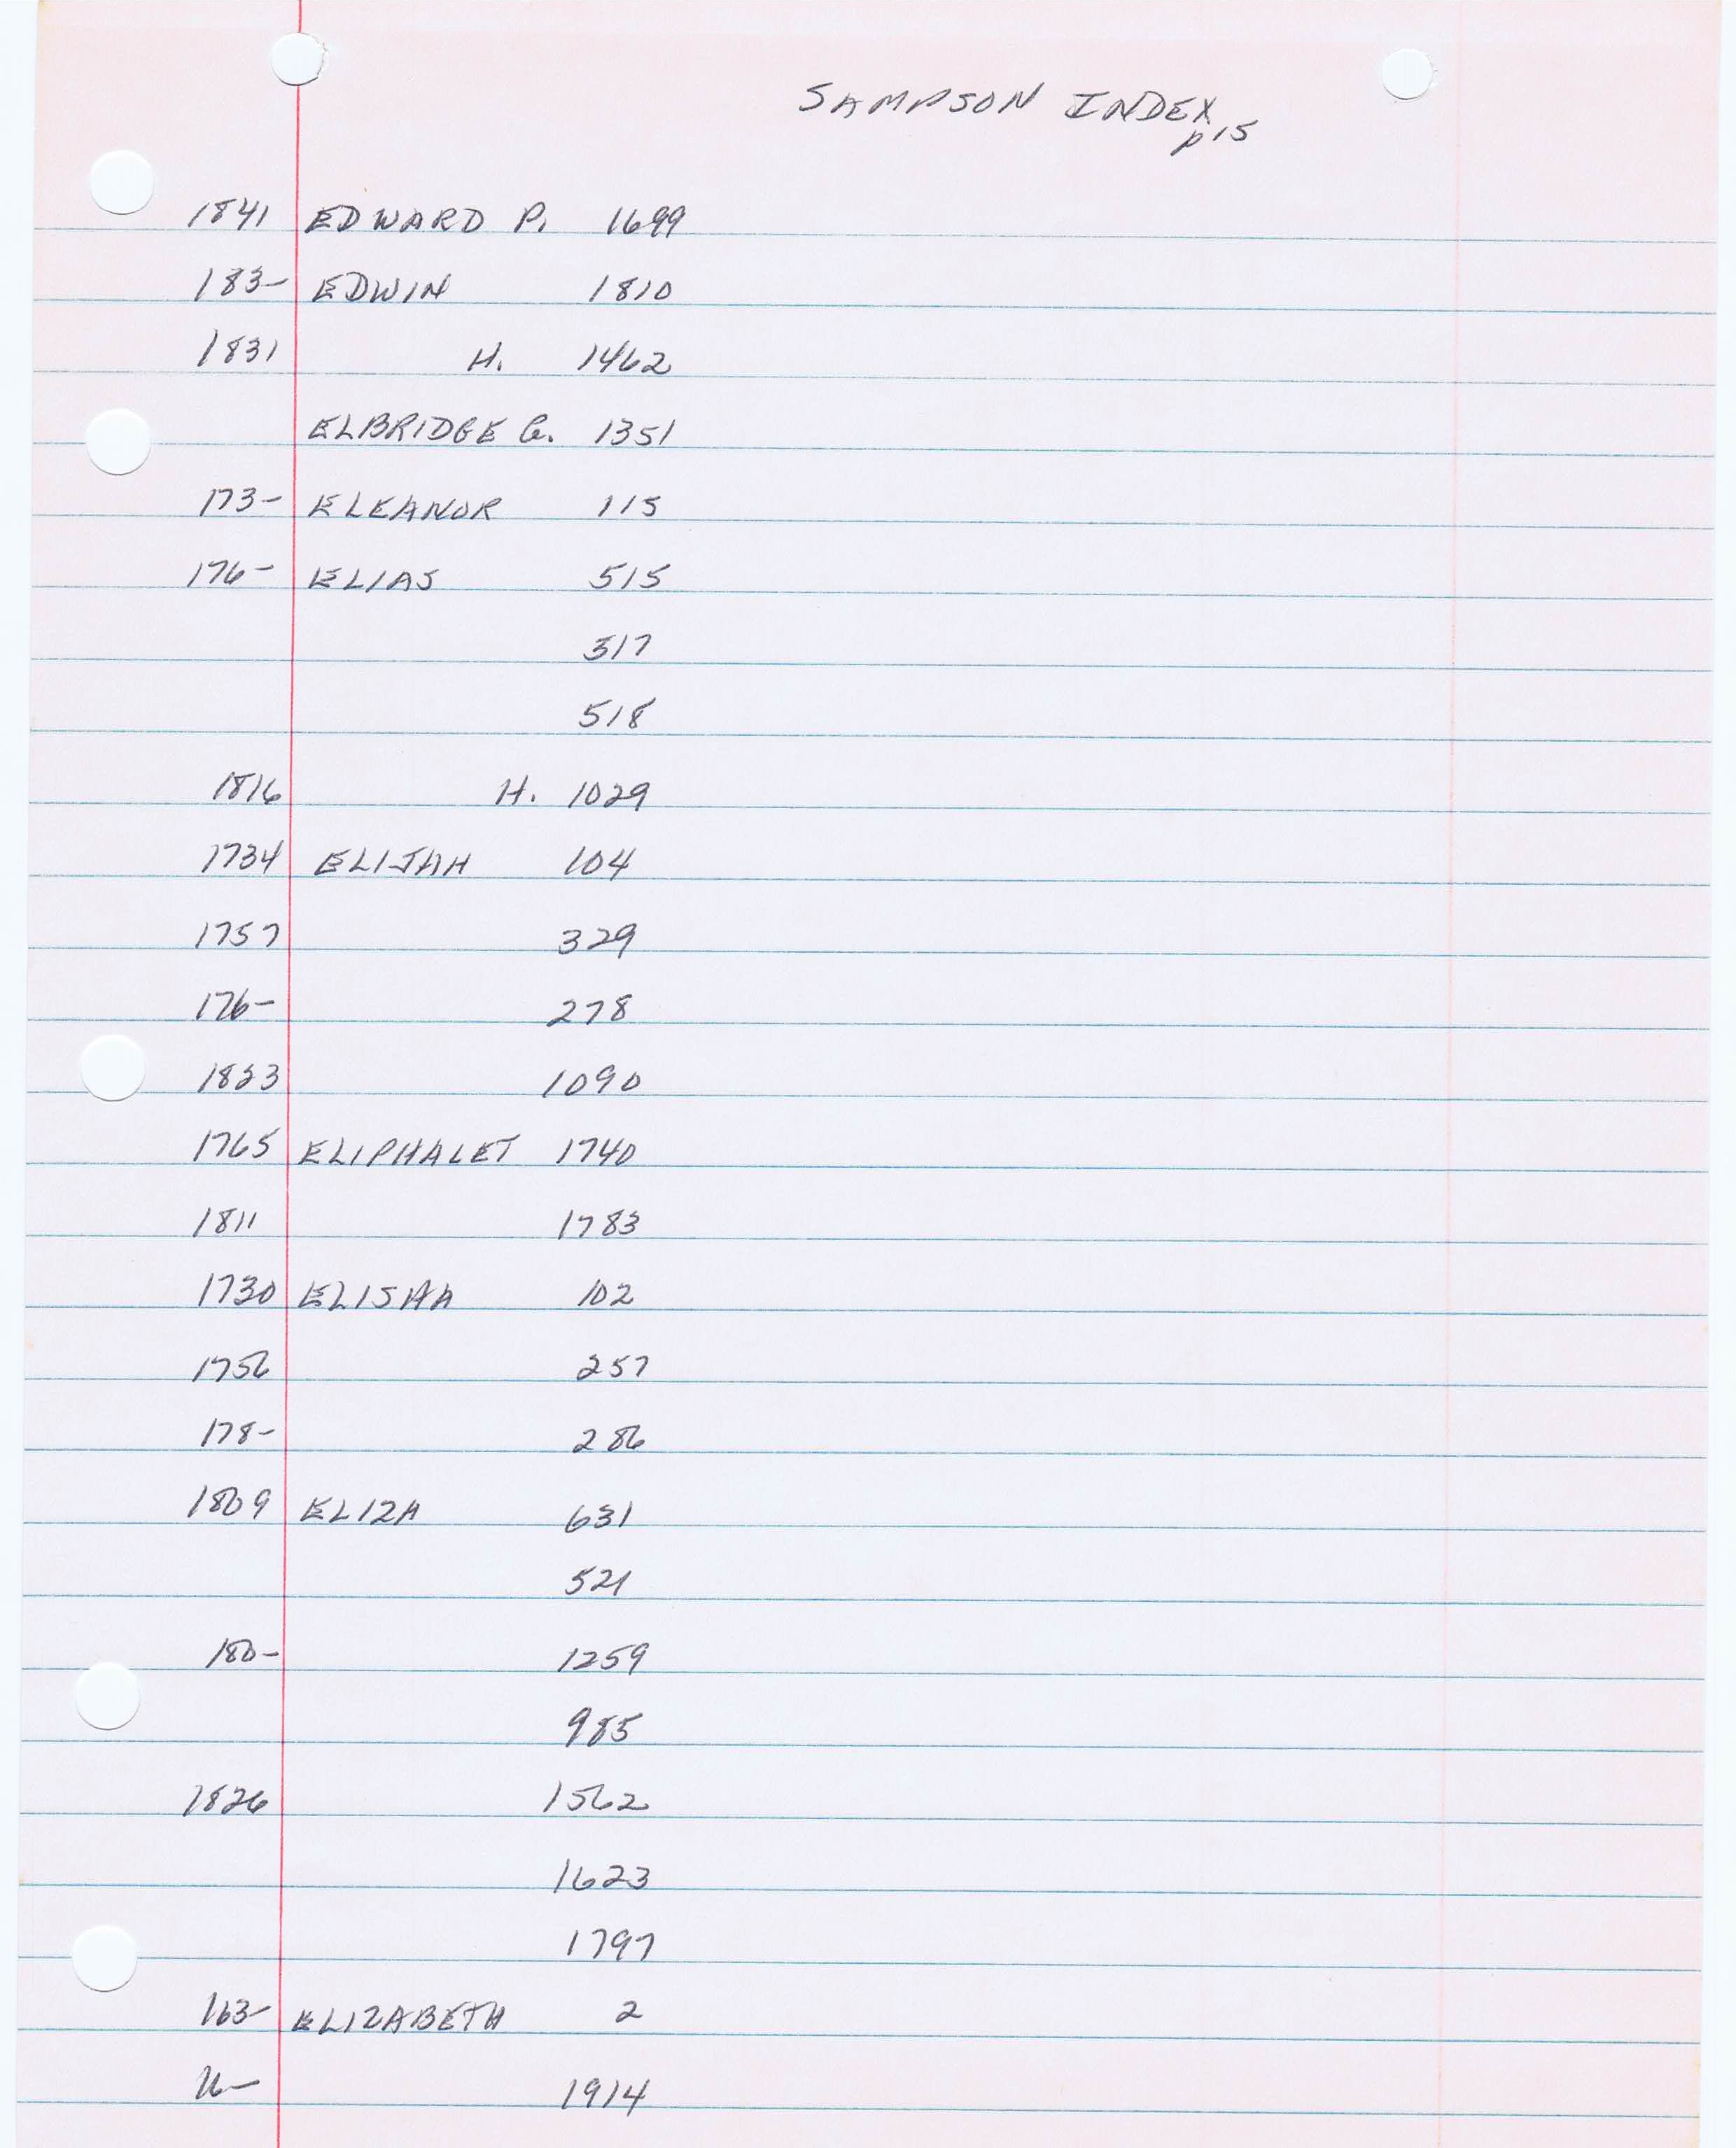 SAMPSON INDEX
p15
1841 EDWARD P. 1699
183- EDWIN 1810
1831 H. 1462
ELBRIDGE G. 1351
173- ELEANOR 115
176- ELIAS 515
517
518
1816 H. 1029
1734 ELIJAH 104
1757 329
176- 278
1823 1090
1765 ELIPHALET 1740
1811 1783
1730 ELISHA 102
1756 257
178- 286
1809 ELIZA 631
521
180- 1259
985
1826 1562
1623
1797
163- ELIZABETH 2
16- 1914